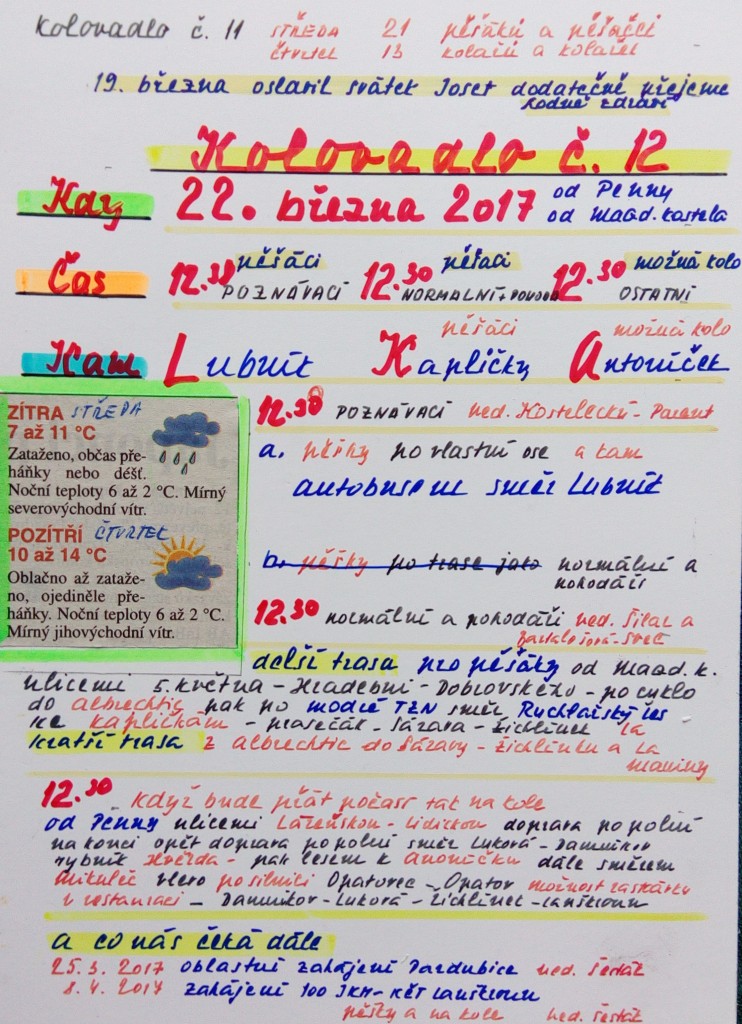 Kolovadlo č. 11 STŘEDA 21 pěšáků a pěšaček
ČTVRTEK 13 kolařů a kolařek
19. března oslavil svátek Josef dodatečně přejeme
hodně zdraví
Kolovadlo č. 12
Kdy 22. března 2017 od Penny
od Maad. kostela
Čas 12.30 pěšáci 12.30 pěšáci 12.30 možná kolo
POZNÁVACÍ NORMALNÍ + POHODA OSTATNÍ
pěšáci možná kolo
Kam Lubník Kapličky Antoníček
ZÍTRA STŘEDA
7 až 11 °C
Zataženo, občas pře-
háňky nebo déšť.
Noční teploty 6 až 2 °C. Mírný
severovýchodní vítr.
POZÍTŘÍ ČTVRTEK
10 až 14 °C
Oblačno až zataže-
no, ojediněle pře-
háňky. Noční teploty 6 až 2 °C.
Mírný jihovýchodní vítr.
12.30 POZNÁVACÍ ved. Kostelecký -
a. pěšky po vlastní ose a tam
autobusem směr Lubník
b. pěšky po trase jako normální a
pohodáři
12.30 normální a pohodáři ved. Šilar a
delší trasa pro pěšáky od Maad. k.
ulicemi 5. května - Hradební - Dobrovského - po cyklo
do albrechtic pak po modré TZN směr Rychtářský les
ke kapličkám - prasečák - Sázava - Žichlínek
kratší trasa z albrechtic do Sázavy - Žichlínku a
12.30 když bude přát počasí tak na kole
od Penny ulicemi Lázeňskou - Lidickou doprava po polní
na konci opět doprava po polní směr Luková - Damníkov
rybník Hvězda - pak lesem k Anoníčku dále směrem
Mikuleč vlevo po silnici Opatovec - Opatov možnost zaskávky
v restauraci - Damníkov - Luková - Žichlínek - Lanškroun
a co nás čeká dále
25.3. 2017 oblastní zahájení Pardubice ved. Šesták
8.4. 2017 zahájení 100 JKM - KČT Lanškroun
pěšky a na kole ved. Šesták